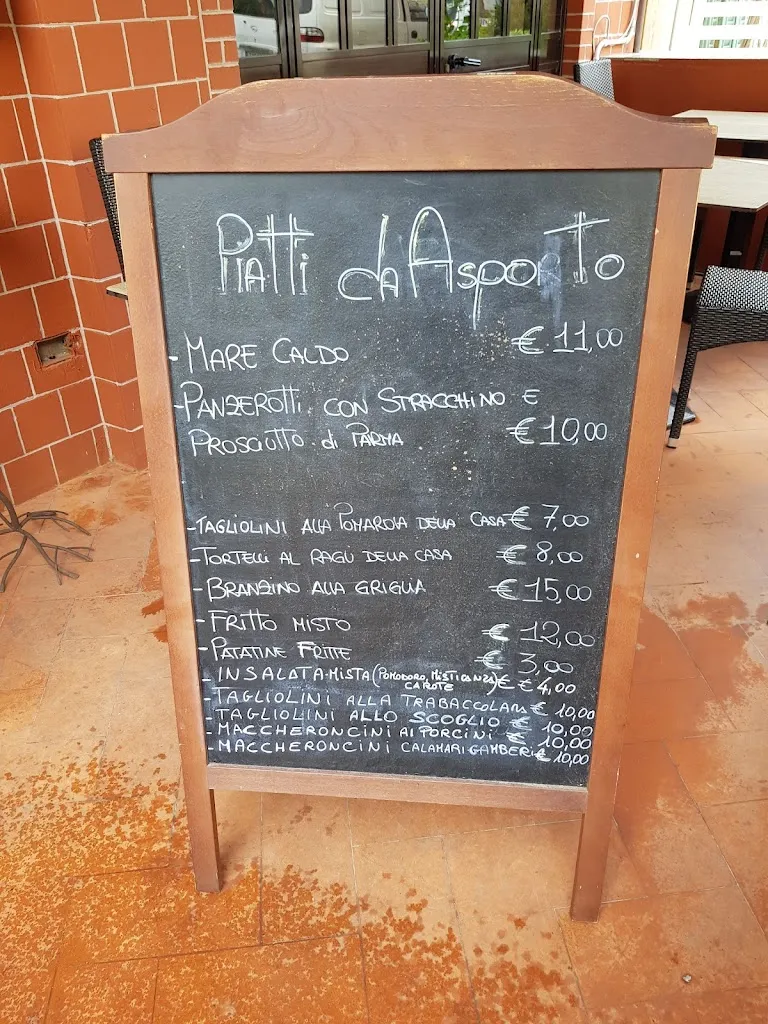 Piatti da Asporto
- MARE CALDO € 11,00
- PANZEROTTI CON STRACCHINO E
PROSCIUTTO di PARMA € 10,00
- TAGLIOLINI ALLA POMAROLA DELLA CASA € 7,00
- TORTELLI AL RAGÙ DELLA CASA € 8,00
- BRANZINO ALLA GRIGLIA € 15,00
- FRITTO MISTO € 12,00
- PATATINE FRITTE € 3,00
- INSALATA MISTA (POMODORO, MISTICANZA, CAROTE) € € 4,00
- TAGLIOLINI ALLA TRABACCOLARA € 10,00
- TAGLIOLINI ALLO SCOGLIO € 10,00
- MACCHERONCINI AI PORCINI € 10,00
- MACCHERONCINI CALAMARI GAMBERI € 10,00